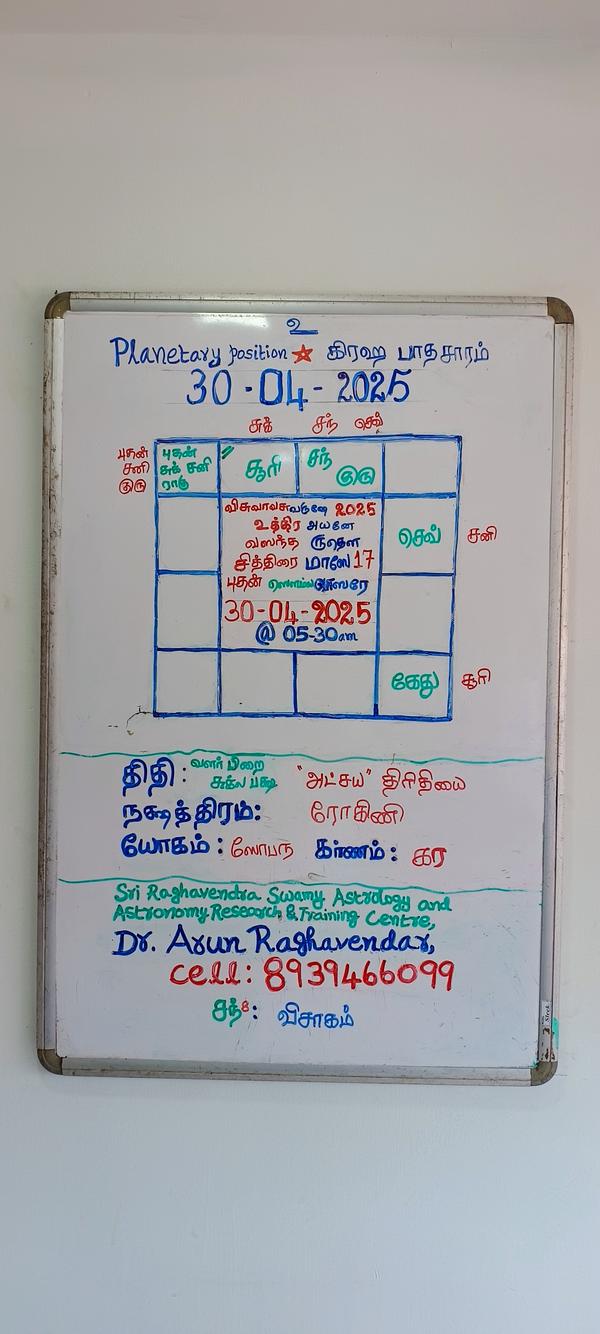 உ
Planetary position ☆ கிரஹ பாதசாரம்
30-04-2025
சுக் சந் செவ்
புதன்
சனி
குரு
புதன்
சுக் சனி
ராகு
சூரி
சந்
குரு
செவ்
சனி
2025
உத்திர அயனே
வஸந்த ருதௌ
சித்திரை மாஸே 17
புதன்
30-04-2025
@ 05-30am
கேது
சூரி
திதி: வளர் பிறை "அட்சய" திரிதியை
சுக்ல பக்ஷ
நக்ஷத்திரம்: ரோகிணி
யோகம்: ஸோபந கர்ணம்: கர
Sri Raghavendra Swamy Astrology and
Astronomy Research & Training Centre,
Dr. Arun Raghavendar,
cell: 8939466099
சந்8: விசாகம்